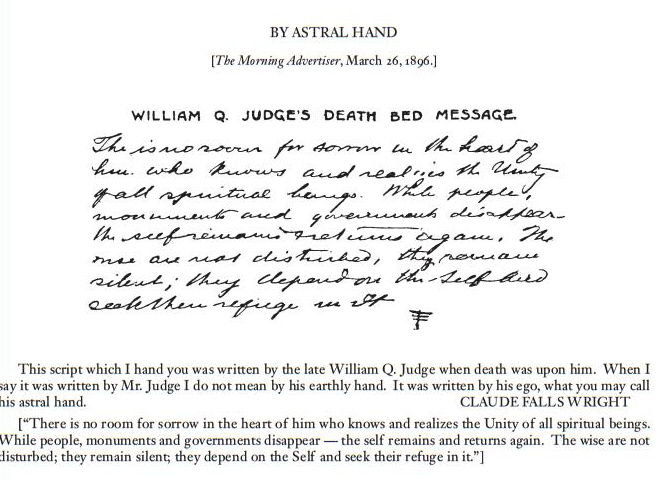 BY ASTRAL HAND
[The Morning Advertiser, March 26, 1896.]
WILLIAM Q. JUDGE'S DEATH BED MESSAGE.
The is no room for sorrow in the heart of
him who knows and realizes the Unity
of all spiritual beings. While people,
monuments and governments disappear
the self remains & returns again. The
wise are not disturbed, they remain
silent; they depend on the Self and
seek their refuge in It
This script which I hand you was written by the late William Q. Judge when death was upon him. When I
say it was written by Mr. Judge I do not mean by his earthly hand. It was written by his ego, what you may call
his astral hand. CLAUDE FALLS WRIGHT
[“There is no room for sorrow in the heart of him who knows and realizes the Unity of all spiritual beings.
While people, monuments and governments disappear — the self remains and returns again. The wise are not
disturbed; they remain silent; they depend on the Self and seek their refuge in it.”]